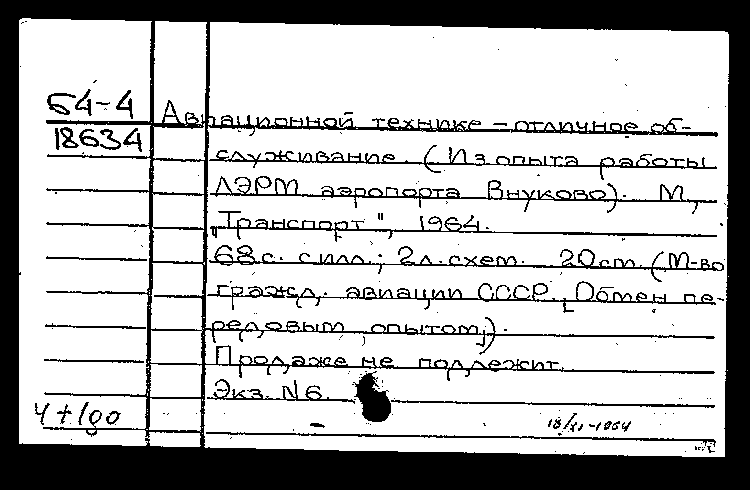 64-4
18634
Авиационной технике - отличное об-
служивание. (Из опыта работы
ЛЭРМ аэропорта Внуково). М.,
"Транспорт", 1964.
68 с. с илл.; 2 л. схем. 20 cm. (М-во
гражд. авиации СССР. [Обмен пе-
редовым опытом]).
Продаже не подлежит.
Экз. N 6.
18/XI-1964